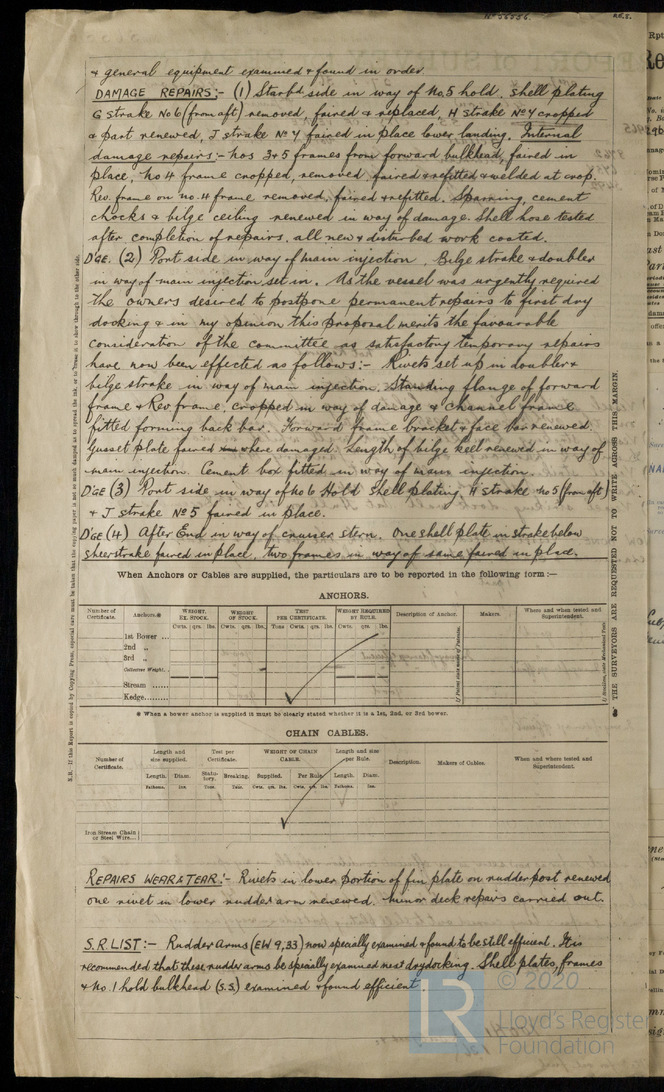 No 56556.
R.6.8.
& general equipment examined & found in order.
DAMAGE REPAIRS:- (1) Starbd side in way of No.5 hold, shell plating
G strake No 6 (from aft) removed, faired & replaced, H strake No 4 cropped
& part renewed, J strake No 4 faired in place lower landing. Internal
damage repairs:- Nos 3 & 5 frames from forward bulkhead, faired in
place, No 4 frame cropped, removed faired & refitted & welded at crop.
Rev. frame on no. 4 frame removed, faired & refitted. Sparring, cement
chocks & bilge ceiling renewed in way of damage. Shell hose tested
after completion of repairs, all new & disturbed work coated.
D'GE. (2) Port side in way of main injection. Bilge strake & doubler
in way of main injection set in. As the vessel was urgently required
the owners desired to postpone permanent repairs to first dry
docking & in my opinion this proposal merits the favourable
consideration of the committee as satisfactory temporary repairs
have now been effected as follows:- Rivets set up in doubler &
bilge strake in way of main injection. Standing flange of forward
frame & Rev frame, cropped in way of damage & channel frame
fitted forming back bar. Forward frame bracket & face bar renewed.
Gusset plate faired where damaged. Length of bilge keel renewed in way of
main injection. Cement box fitted in way of main injection.
D'GE (3) Port side in way of No 6 Hold shell plating, H strake No 5 (from aft)
& J strake No 5 faired in place.
D'GE (4) After End in way of cruiser stern. One shell plate in strake below
sheerstrake faired in place, two frames in way of same faired in place.
When Anchors or Cables are supplied, the particulars are to be reported in the following form:—
ANCHORS.
Number of Certificate. Anchors.* WEIGHT, EX. STOCK. WEIGHT OF STOCK. TEST PER CERTIFICATE. WEIGHT REQUIRED BY RULE. Description of Anchor. Makers. Where and when tested and Superintendent.
Cwts. qrs. lbs. Cwts. qrs. lbs. Tons Cwts. qrs. lbs. Cwts. qrs. lbs.
1st Bower ...
2nd „
3rd „
Collective Weight.
Stream ......
Kedge........
* When a bower anchor is supplied it must be clearly stated whether it is a 1st, 2nd, or 3rd bower.
CHAIN CABLES.
Number of Certificate. Length and size supplied. Test per Certificate. WEIGHT OF CHAIN CABLE. Length and size per Rule. Description. Makers of Cables. When and where tested and Superintendent.
Length. Diam. Statutory. Breaking. Supplied. Per Rule. Length. Diam.
Fathoms. Ins. Tons. Tons. Cwts. qrs. lbs. Cwts. qrs. lbs. Fathoms. Ins.
Iron Stream Chain or Steel Wire....
REPAIRS WEAR & TEAR:- Rivets in lower portion of fin plate on rudder post renewed
one rivet in lower rudder arm renewed. Minor deck repairs carried out.
S.R LIST:- Rudder Arms (EW 9,33) now specially examined & found to be still efficient. It is
recommended that these rudder arms be specially examined next drydocking. Shell plates, frames
& No. 1 hold bulkhead (S.S.) examined & found efficient.
THE SURVEYORS ARE REQUESTED NOT TO WRITE ACROSS THIS MARGIN.
© 2020
LR
Lloyd's Register
Foundation